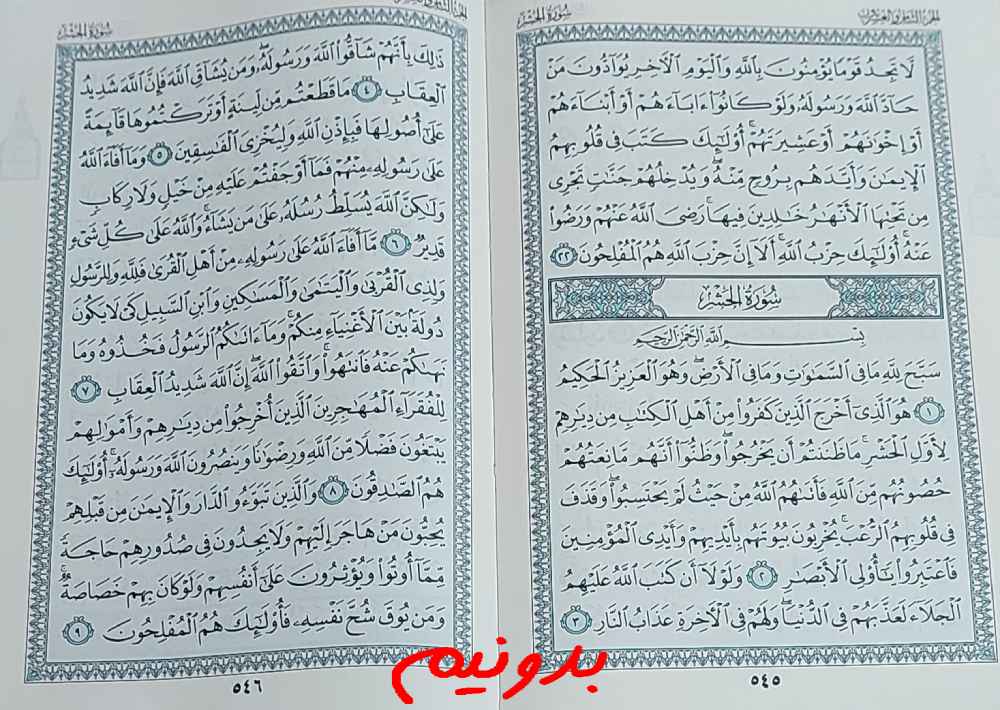 سُورَةُ الحَشْرِ
الجزء الثامن والعشرون
لَّا تَجِدُ قَوْمًا يُؤْمِنُونَ بِٱللَّهِ وَٱلْيَوْمِ ٱلْأَخِرِ يُوَآدُّونَ مَنْ
حَآدَّ ٱللَّهَ وَرَسُولَهُۥ وَلَوْ كَانُوٓا۟ ءَابَآءَهُمْ أَوْ أَبْنَآءَهُمْ
أَوْ إِخْوَٰنَهُمْ أَوْ عَشِيرَتَهُمْ ۚ أُو۟لَٰٓئِكَ كَتَبَ فِى قُلُوبِهِمُ
ٱلْإِيمَٰنَ وَأَيَّدَهُم بِرُوحٍ مِّنْهُ ۖ وَيُدْخِلُهُمْ جَنَّٰتٍ تَجْرِى
مِن تَحْتِهَا ٱلْأَنْهَٰرُ خَٰلِدِينَ فِيهَا ۚ رَضِىَ ٱللَّهُ عَنْهُمْ وَرَضُوا۟
عَنْهُ ۚ أُو۟لَٰٓئِكَ حِزْبُ ٱللَّهِ ۚ أَلَآ إِنَّ حِزْبَ ٱللَّهِ هُمُ ٱلْمُفْلِحُونَ ٢٢
سُورَةُ الحَشْرِ
بِسْمِ ٱللَّهِ ٱلرَّحْمَٰنِ ٱلرَّحِيمِ
سَبَّحَ لِلَّهِ مَا فِى ٱلسَّمَٰوَٰتِ وَمَا فِى ٱلْأَرْضِ ۖ وَهُوَ ٱلْعَزِيزُ ٱلْحَكِيمُ
١ هُوَ ٱلَّذِىٓ أَخْرَجَ ٱلَّذِينَ كَفَرُوا۟ مِنْ أَهْلِ ٱلْكِتَٰبِ مِن دِيَٰرِهِمْ
لِأَوَّلِ ٱلْحَشْرِ ۚ مَا ظَنَنتُمْ أَن يَخْرُجُوا۟ ۖ وَظَنُّوٓا۟ أَنَّهُم مَّانِعَتُهُمْ
حُصُونُهُم مِّنَ ٱللَّهِ فَأَتَىٰهُمُ ٱللَّهُ مِنْ حَيْثُ لَمْ يَحْتَسِبُوا۟ ۖ وَقَذَفَ
فِى قُلُوبِهِمُ ٱلرُّعْبَ ۚ يُخْرِبُونَ بُيُوتَهُم بِأَيْدِيهِمْ وَأَيْدِى ٱلْمُؤْمِنِينَ
فَٱعْتَبِرُوا۟ يَٰٓأُو۟لِى ٱلْأَبْصَٰرِ ٢ وَلَوْلَآ أَن كَتَبَ ٱللَّهُ عَلَيْهِمُ
ٱلْجَلَآءَ لَعَذَّبَهُمْ فِى ٱلدُّنْيَا ۖ وَلَهُمْ فِى ٱلْأَخِرَةِ عَذَابُ ٱلنَّارِ ٣
٥٤٥
الجزء الثامن والعشرون
سُورَةُ الحَشْرِ
ذَٰلِكَ بِأَنَّهُمْ شَآقُّوا۟ ٱللَّهَ وَرَسُولَهُۥ ۖ وَمَن يُشَآقِّ ٱللَّهَ فَإِنَّ ٱللَّهَ شَدِيدُ
ٱلْعِقَابِ ٤ مَا قَطَعْتُم مِّن لِّينَةٍ أَوْ تَرَكْتُمُوهَا قَآئِمَةً
عَلَىٰٓ أُصُولِهَا فَبِإِذْنِ ٱللَّهِ وَلِيُخْزِىَ ٱلْفَٰسِقِينَ ٥ وَمَآ أَفَآءَ ٱللَّهُ
عَلَىٰ رَسُولِهِۦ مِنْهُمْ فَمَآ أَوْجَفْتُمْ عَلَيْهِ مِنْ خَيْلٍ وَلَا رِكَابٍ
وَلَٰكِنَّ ٱللَّهَ يُسَلِّطُ رُسُلَهُۥ عَلَىٰ مَن يَشَآءُ ۚ وَٱللَّهُ عَلَىٰ كُلِّ شَىْءٍ
قَدِيرٌ ٦ مَّآ أَفَآءَ ٱللَّهُ عَلَىٰ رَسُولِهِۦ مِنْ أَهْلِ ٱلْقُرَىٰ فَلِلَّهِ وَلِلرَّسُولِ
وَلِذِى ٱلْقُرْبَىٰ وَٱلْيَتَٰمَىٰ وَٱلْمَسَٰكِينِ وَٱبْنِ ٱلسَّبِيلِ كَىْ لَا يَكُونَ
دُولَةًۢ بَيْنَ ٱلْأَغْنِيَآءِ مِنكُمْ ۚ وَمَآ ءَاتَىٰكُمُ ٱلرَّسُولُ فَخُذُوهُ وَمَا
نَهَىٰكُمْ عَنْهُ فَٱنتَهُوا۟ ۚ وَٱتَّقُوا۟ ٱللَّهَ ۖ إِنَّ ٱللَّهَ شَدِيدُ ٱلْعِقَابِ ٧
لِلْفُقَرَآءِ ٱلْمُهَٰجِرِينَ ٱلَّذِينَ أُخْرِجُوا۟ مِن دِيَٰرِهِمْ وَأَمْوَٰلِهِمْ
يَبْتَغُونَ فَضْلًا مِّنَ ٱللَّهِ وَرِضْوَٰنًا وَيَنصُرُونَ ٱللَّهَ وَرَسُولَهُۥٓ ۚ أُو۟لَٰٓئِكَ
هُمُ ٱلصَّٰدِقُونَ ٨ وَٱلَّذِينَ تَبَوَّءُو ٱلدَّارَ وَٱلْإِيمَٰنَ مِن قَبْلِهِمْ
يُحِبُّونَ مَنْ هَاجَرَ إِلَيْهِمْ وَلَا يَجِدُونَ فِى صُدُورِهِمْ حَاجَةً
مِّمَّآ أُوتُوا۟ وَيُؤْثِرُونَ عَلَىٰٓ أَنفُسِهِمْ وَلَوْ كَانَ بِهِمْ خَصَاصَةٌ ۚ
وَمَن يُوقَ شُحَّ نَفْسِهِۦ فَأُو۟لَٰٓئِكَ هُمُ ٱلْمُفْلِحُونَ ٩
٥٤٦
بدونیم